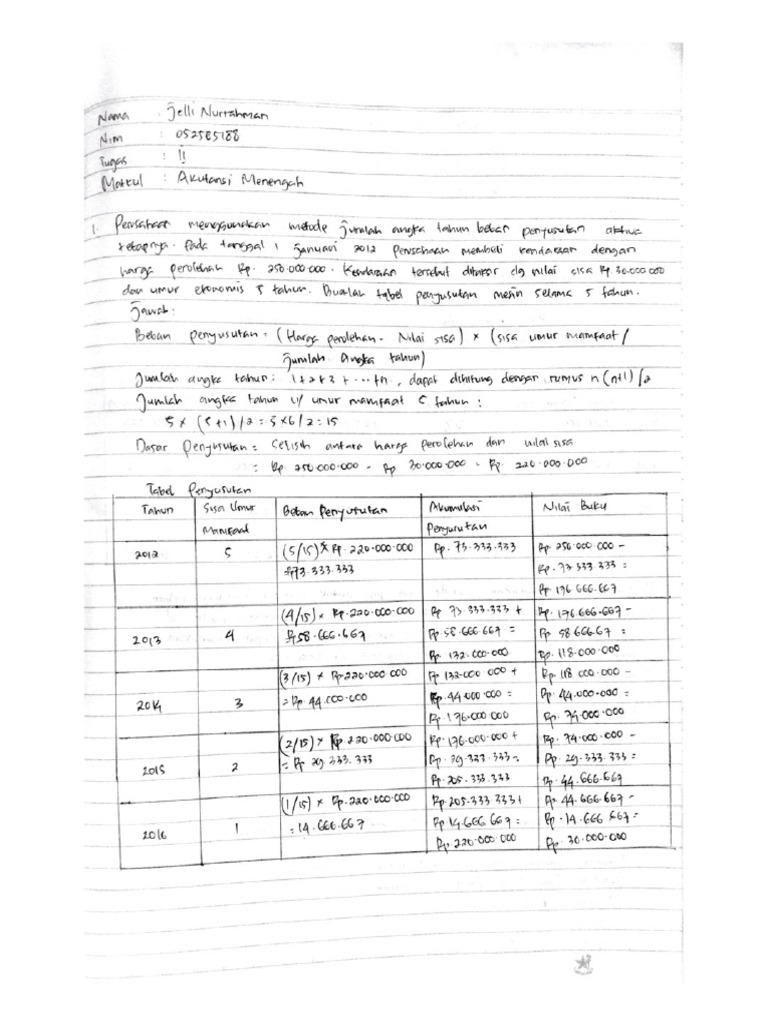 Nama : Jelli Nurrahman
Nim : 052585188
Tugas : II
Matkul : Akutansi Menengah
1. Perusahaan menggunakan metode jumlah angka tahun beban penyusutan aktiva
tetapnya. Pada tanggal 1 januari 2012 perusahaan membeli kendaraan dengan
harga perolehan Rp. 250.000.000. Kendaraan tersebut ditaksir dg nilai sisa Rp. 30.000.000
dan umur ekonomis 5 tahun. Buatlah tabel penyusutan mesin selama 5 tahun.
Jawab:
Beban penyusutan = (Harga perolehan - Nilai sisa) × (sisa umur mamfaat /
jumlah angka tahun)
Jumlah angka tahun : 1+2+3+ ...+n, dapat dihitung dengan rumus n(n+1)/2
Jumlah angka tahun u/ umur mamfaat 5 tahun :
5 × (5+1)/2 = 5×6/2 = 15
Dasar Penyusutan = selisih antara harga perolehan dan nilai sisa
= Rp 250.000.000 - Rp 30.000.000 = Rp. 220.000.000
Tabel Penyusutan
Tahun Sisa Umur Beban Penyusutan Akumulasi Nilai Buku
Mamfaat Penyusutan
2012 5 (5/15) × Rp. 220.000.000 Rp. 73.333.333 Rp. 250.000.000 -
= Rp73.333.333 Rp. 73.333.333 =
Rp 176.666.667
(4/15) × Rp. 220.000.000 Rp 73.333.333 + Rp. 176.666.667 -
2013 4 Rp58.666.667 Rp 58.666.667 = Rp 58.666.67 =
Rp. 132.000.000 Rp. 118.000.000
(3/15) × Rp220.000.000 Rp 132.000.000 + Rp 118.000.000 -
2014 3 = Rp. 44.000.000 Rp.44.000.000 = Rp. 44.000.000 =
Rp. 176.000.000 Rp. 74.000.000
(2/15) × Rp.220.000.000 Rp. 176.000.000 + Rp. 74.000.000 -
2015 2 = Rp 29.333.333 Rp. 29.333.333 = Rp. 29.333.333 =
Rp. 205.333.333 Rp. 44.666.667
(1/15) × Rp.220.000.000 Rp.205.333.333 + Rp. 44.666.667 -
2016 1 = 14.666.667 Rp 14.666.667 = Rp. 14.666.667 =
Rp 220.000.000 Rp. 30.000.000